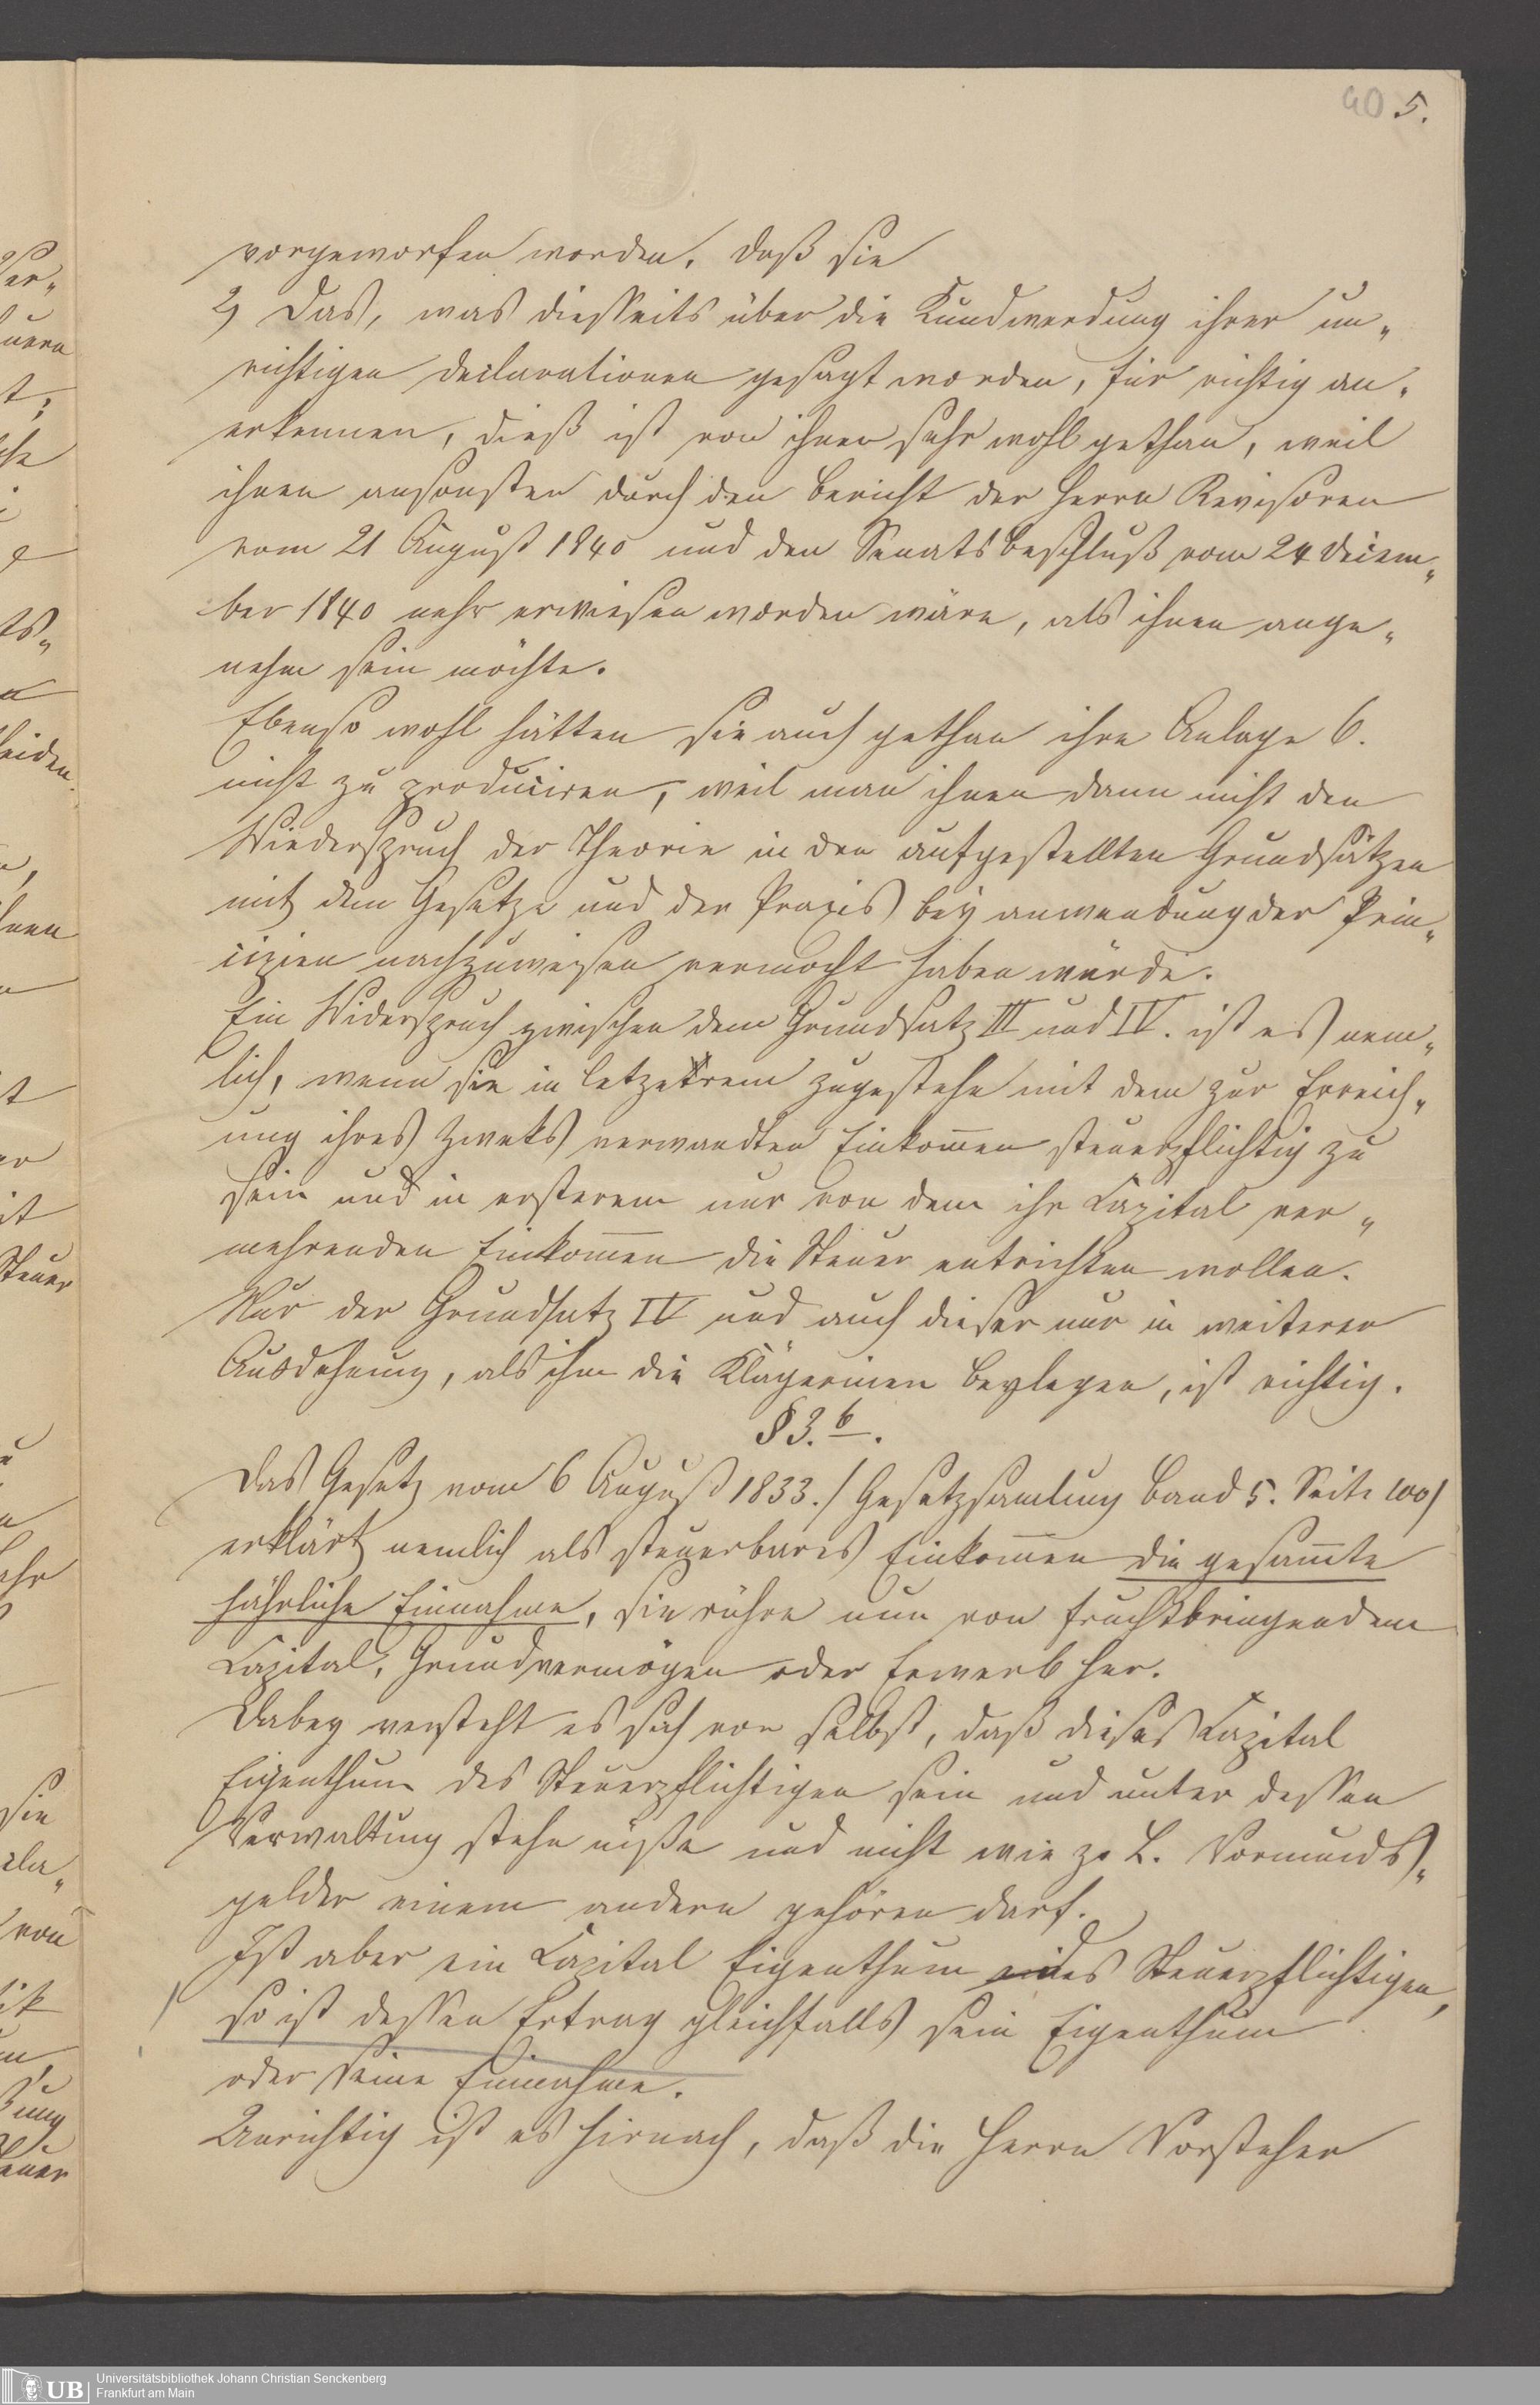 40 5.
vorgeworfen worden. Daß sie
2) Das, was diesseits über die Kundwerdung ihrer un„
richtigen Declarationen gesagt worden, für richtig an„
erkennen, dieß ist von ihnen sehr wohl gethan, weil
ihnen ansonsten durch den Bericht der Herrn Revisoren
vom 21 August 1840 und den Senatsbeschluß vom 24 Decem„
ber 1840 mehr erwiesen worden wäre, als ihnen ange„
nehm sein möchte.
Ebenso wohl hätten sie auch gethan ihre Anlage 6.
nicht zu produciren, weil man ihnen dann nicht den
Wiederspruch der Theorie in den aufgestellten Grundsätzen
mit dem Gesetze und der Praxis bey anwendung der Prin„
cipien nachzuweisen vermocht haben würde.
Ein Widerspruch zwischen dem Grundsatz III und IV. ist es nem„
lich, wenn sie in letzterem zugestehe mit dem zur Erreich„
ung ihres Zweks verwandten Einkom̅en steuerpflichtig zu
sein und in ersterem nur von dem ihr Capital ver„
mehrenden Einkom̅en die Steuer entrichten wollen.
Nur der Grundsatz IV und auch dieser nur in weiterer
Ausdehnung, als ihm die Klägerinen beylegen, ist richtig.
§ 3. b.
Das Gesetz vom 6 August 1833. / Gesetzsamlung Band 5. Seite 100/
erklärt nemlich als steuerbares Einkom̅en die gesam̅te
jährliche Einnahme, sie rühre nun von fruchtbringendem
Capital, Grundvermögen oder Erwerb her.
Dabey versteht es sich von selbst, daß dieses Capital
Eigenthum des Steuerpflichtigen sein und unter dessen
Verwaltung stehn müße und nicht wie z. B. Vormunds„
gelder einem andern gehören darf.
Ist aber ein Capital Eigenthum des Steuerpflichtigen,
so ist dessen Ertrag gleichfalls sein Eigenthum
oder seine Einnahme.
Unrichtig ist es hiernach, daß die Herrn Vorsteher
UB Universitätsbibliothek Johann Christian Senckenberg
Frankfurt am Main